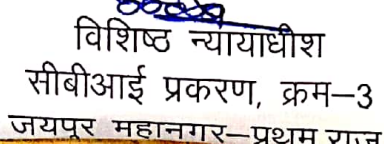 विशिष्ठ न्यायाधीश
सीबीआई प्रकरण, क्रम–3
जयपुर महानगर–प्रथम राज